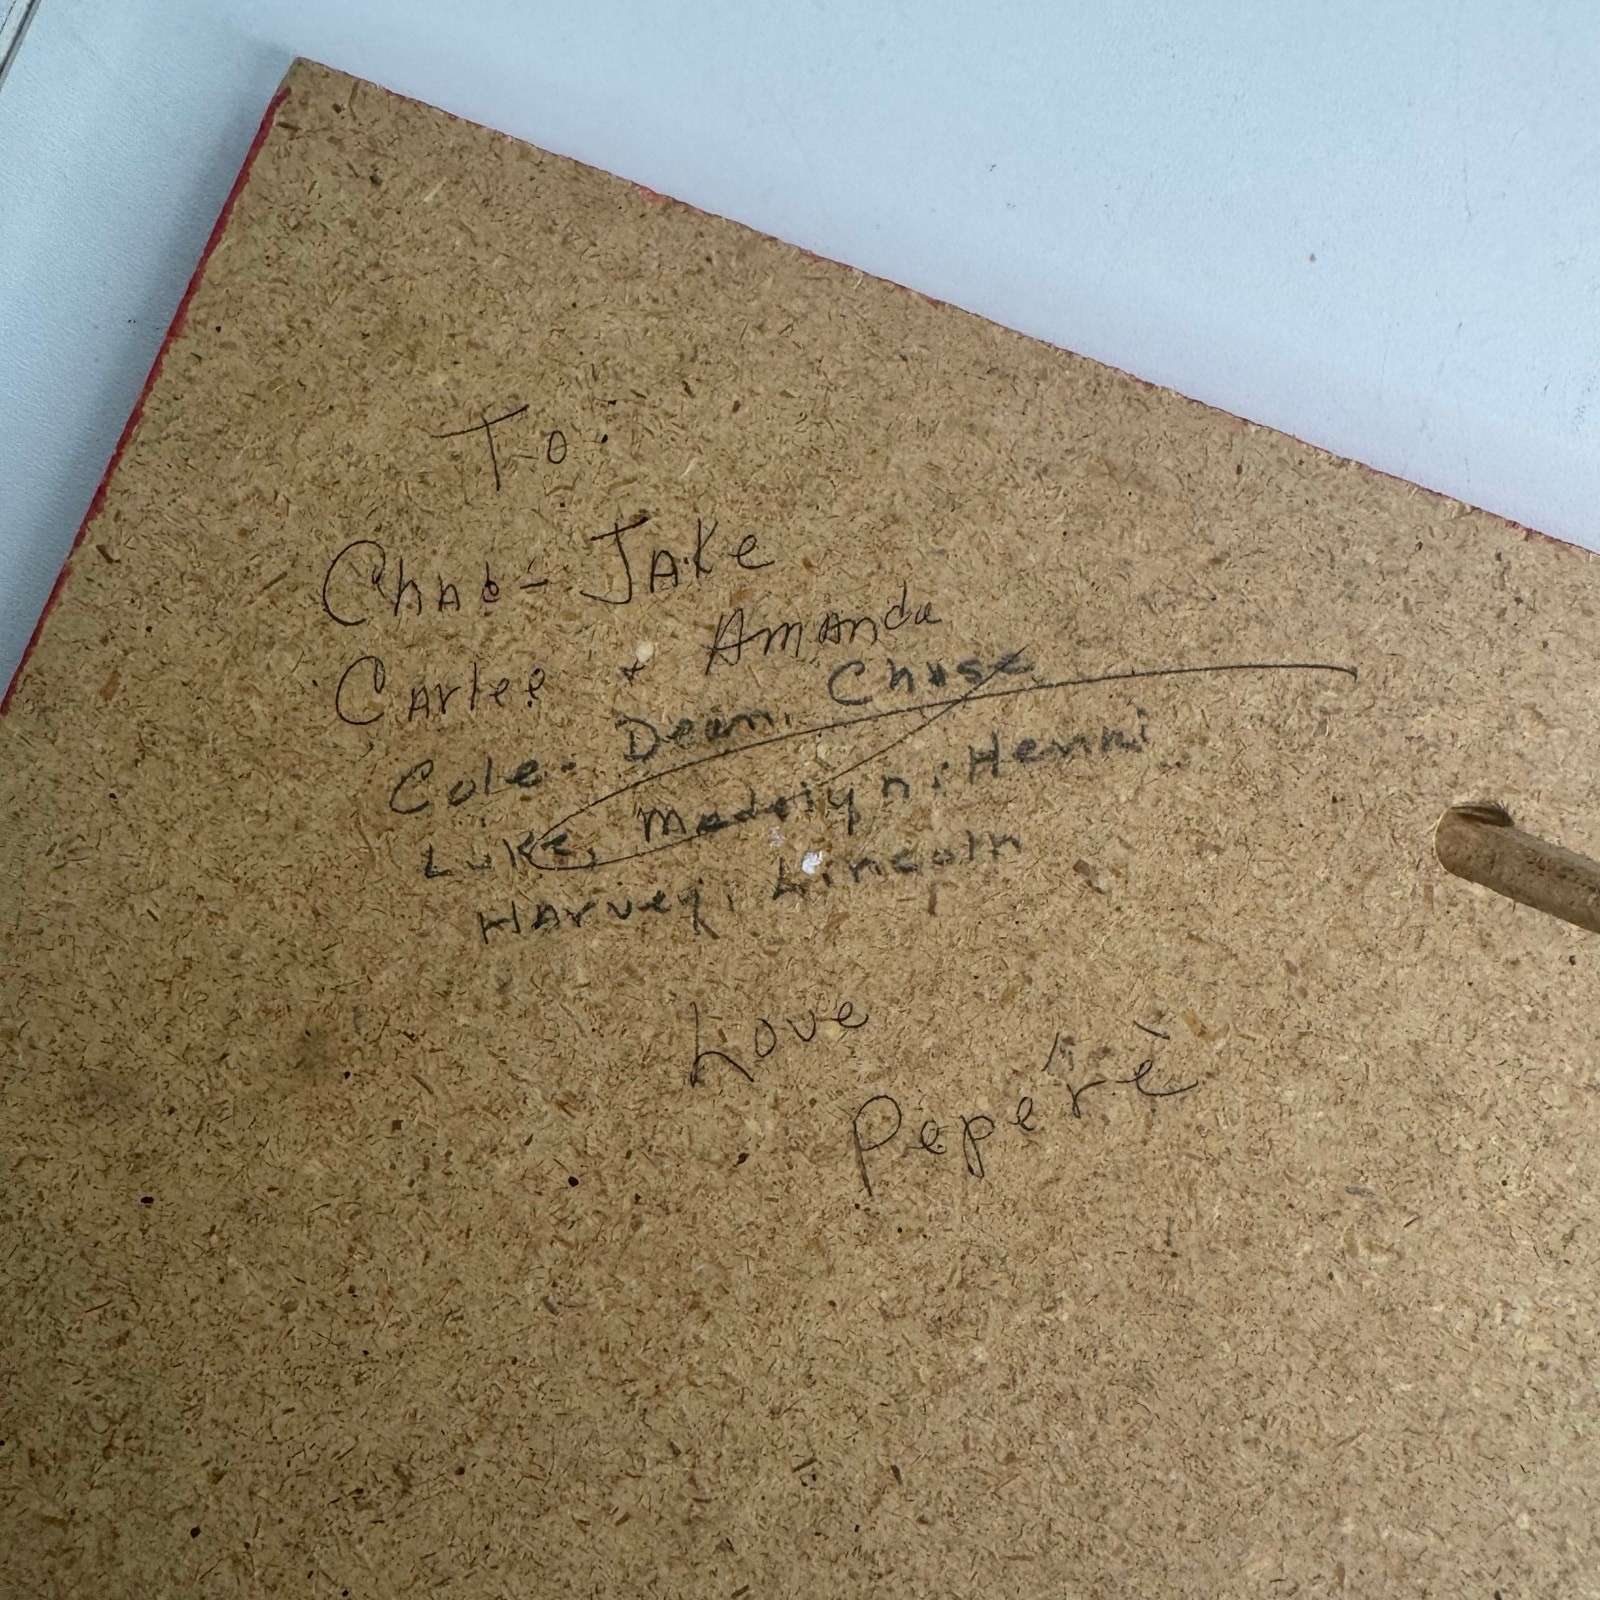 To:
Chad - Jake
Carlee + Amanda
Cole - Dean, Chase
Luke, Madelyn, Henri
Harvey, Lincoln
Love
Pépèrè